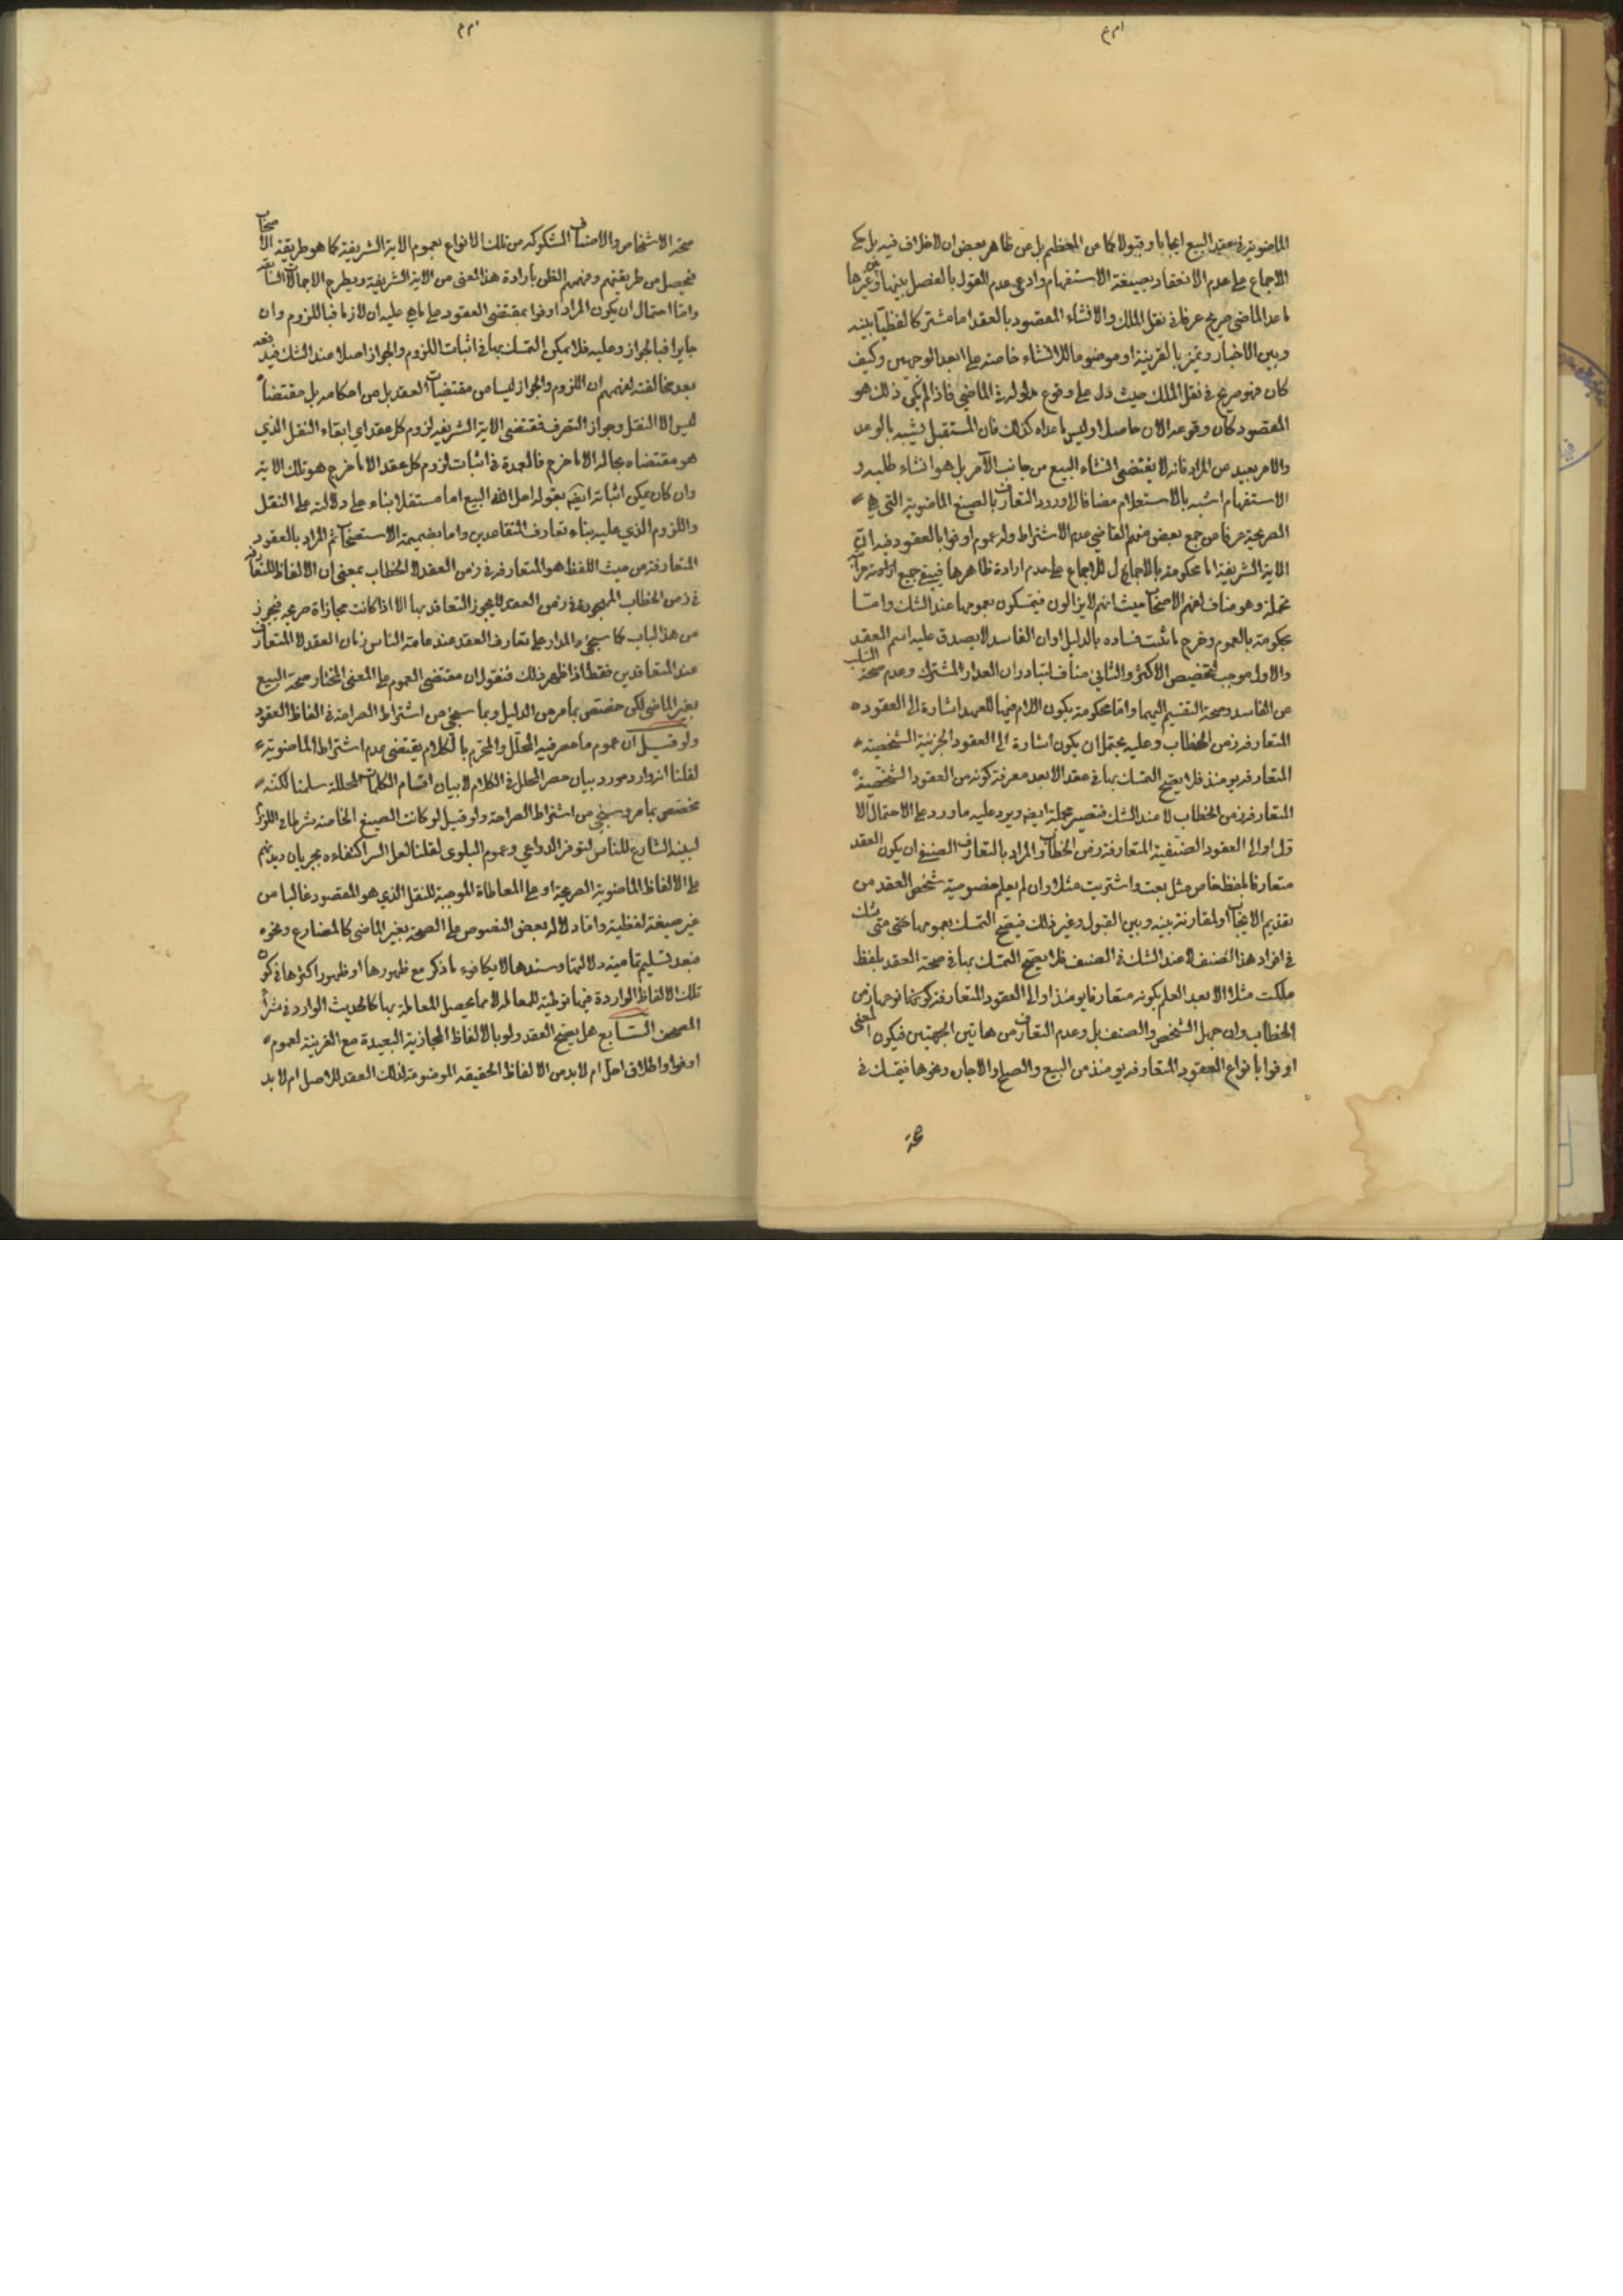 الماضوية في عقد البيع ايجابا وقبولا كما من المعظم بل من ظاهر بعض ان لا خلاف فيه بل حكي
الاجماع على عدم الانعقاد بصيغة الاستفهام وادعى عدم القول بالفصل بينها وغيرها
ما عدا الماضي صريح عرفا في نقل الملك والانشاء المقصود بالعقد اما مشتركا لفظيا بينه
وبين الاخبار وتميز بالقرينة او موضوعا للانشاء خاصة على ابعد الوجهين وكيف
كان فهو صريح في نقل الملك حيث دل على وقوع مدلوله في الماضي فاذا لم يكن ذلك هو
المقصود كان وقوعه الان حاصلا وليس ما عداه كذلك فان المستقبل يشبه بالوعد
والامر بعيد عن المراد فانه لا يقتضي انشاء البيع من جانب الآمر بل هو انشاء طلبه و
الاستفهام اشبه بالاستعلام مضافا لا ورود التعارف بالصيغ الماضوية التي هي
الصريحة عرفا من جمع بعض منهم القاضي عدم الاشتراط وله عموم اوفوا بالعقود فيه ان
الاية الشريفة اما محكومة بالاجماع على عدم ارادة ظاهرها فيبقى جميع
مجملة وهو مناف لفهم الاصحاب حيث انهم لا يزالون فيتمسكون بعمومها عند الشك واما
محكومة بالعموم وخرج ما ثبت فساده بالدليل او ان الفاسد لا يصدق عليه اسم العقد
والاول موجب لتخصيص الاكثر والثاني مناف لتبادر ان القدر المشترك وعدم صحة السلب
عن الفاسد وصحة التقسيم اليهما واما محكومة بكون اللام فيها للعهد اشارة الى العقود
المتعارفة زمن الخطاب وعليه يحتمل ان يكون اشارة الى العقود الجزئية الشخصية
المتعارفة يومئذ فلا يصح التمسك بها في عقد الا بعد معرفة كونه من العقود الشخصية
المتعارفة زمن الخطاب لا عند الشك فتصير مجملة ايضا ويرد عليه ما ورد على الاحتمال الا
ول او الى العقود الصنفية المتعارفة زمن الخطاب والمراد بالتعارف الصنفي ان يكون العقد
متعارفا بلفظ خاص مثل بعت واشتريت مثلا وان لم يعلم خصوصية شخص العقد من
تقديم الايجاب او لمقارنة بينه وبين القبول وغير ذلك فيصح التمسك بعمومها حتى متى شك
في افراد هذا الصنف لا عند الشك في الصنف فلا يصح التمسك بها في صحة العقد بلفظ
ملكت مثلا الا بعد العلم بكونه متعارفا يومئذ او الى العقود المتعارفة كونها نوعها زمن
الخطاب وان جهل الشخص والصنف بل وعدم التعارف من هاتين الجهتين فيكون المعنى
اوفوا بانواع العقود المتعارفة يومئذ من البيع والصلح والاجارة ونحوها فيتمسك في
صحة الاشخاص والاصناف المشكوكة من تلك الانواع بعموم الاية الشريفة كما هو طريقة الاصحاب
فيحصل من طريقتهم وفهمهم الظن بارادة هذا المعنى من الاية الشريفة ويطرح الاجمالات السابقة
واما احتمال ان يكون المراد اوفوا بمقتضى العقود على ما هي عليه ان لازما فباللزوم وان
جايزا فبالجواز وعليه فلا يمكن التمسك بها في اثبات اللزوم والجواز اصلا عند الشك فيدفعه
بعد مخالفته لفهمهم ان اللزوم والجواز ليسا من مقتضيات العقد بل من احكامه بل مقتضاه
ليس الا النقل وجواز التصرف فمقتضى الاية الشريفة لزوم كل عقد اي ابقاء النقل الذي
هو مقتضاه بحاله الا ما خرج فالعمدة في اثبات لزوم كل عقد الا ما خرج هو تلك الاية
وان كان يمكن اثباته ايضا بقوله احل الله البيع اما مستقلا بناء على دلالته على النقل
واللزوم الذي عليه بناء تعارف المتعاقدين واما بضميمة الاستصحاب ثم المراد بالعقود
المتعارفة من حيث اللفظ هو المتعارفة في زمن العقد لا الخطاب بمعنى ان الالفاظ المتعارفة
في زمن الخطاب المهجورة في زمن العقد لا يجوز التعاقد بها الا اذا كانت مجازاة صريحة فيجوز
من هذا الباب كما سيجيء والمدار على تعارف العقد عند عامة الناس زمان العقد لا المتعارف
عند المتعاقدين فقط اذا ظهر ذلك فنقول ان مقتضى العموم على المعنى المختار صحة البيع
بغير الماضي لكن خصص بما مر من الدليل وبما سيجيء من اشتراط الصراحة في الفاظ العقود
ولو قيل ان عموم ما حصر فيه المحلل والمحرم بالكلام يقتضي عدم اشتراط الماضوية
لقلنا انه وارد مورد بيان حصر المحلل في الكلام لا بيان اقسام الكلمات المحللة سلمنا لكنه
مخصص بما مر وسيجيء من اشتراط الصراحة ولو قيل لو كانت الصيغ الخاصة شرطا في اللزوم
لبينه الشارع للناس لتوفر الدواعي وعموم البلوى لقلنا لعل السر اكتفاءه بجريان ديدنهم
على الالفاظ الماضوية الصريحة او على المعاطاة الموجبة للنقل الذي هو المقصود غالبا من
غير صيغة لفظية واما دلالة بعض النصوص على الصحة بغير الماضي كالمضارع ونحوه
فبعد تسليم تمامية دلالتها وسندها لا يكافوء ما ذكر مع ظهورها او ظهور اكثرها في كون
تلك الالفاظ الواردة فيها توطية للمعاملة لا مما يحصل المعاملة بها كالحديث الوارد في شراء
المصحف السابع هل يصح العقد ولو بالالفاظ المجازية البعيدة مع القرينة لعموم
اوفوا واطلاق احل ام لا بد من الالفاظ الحقيقة الموضوعة لذلك العقد للاصل ام لا بد